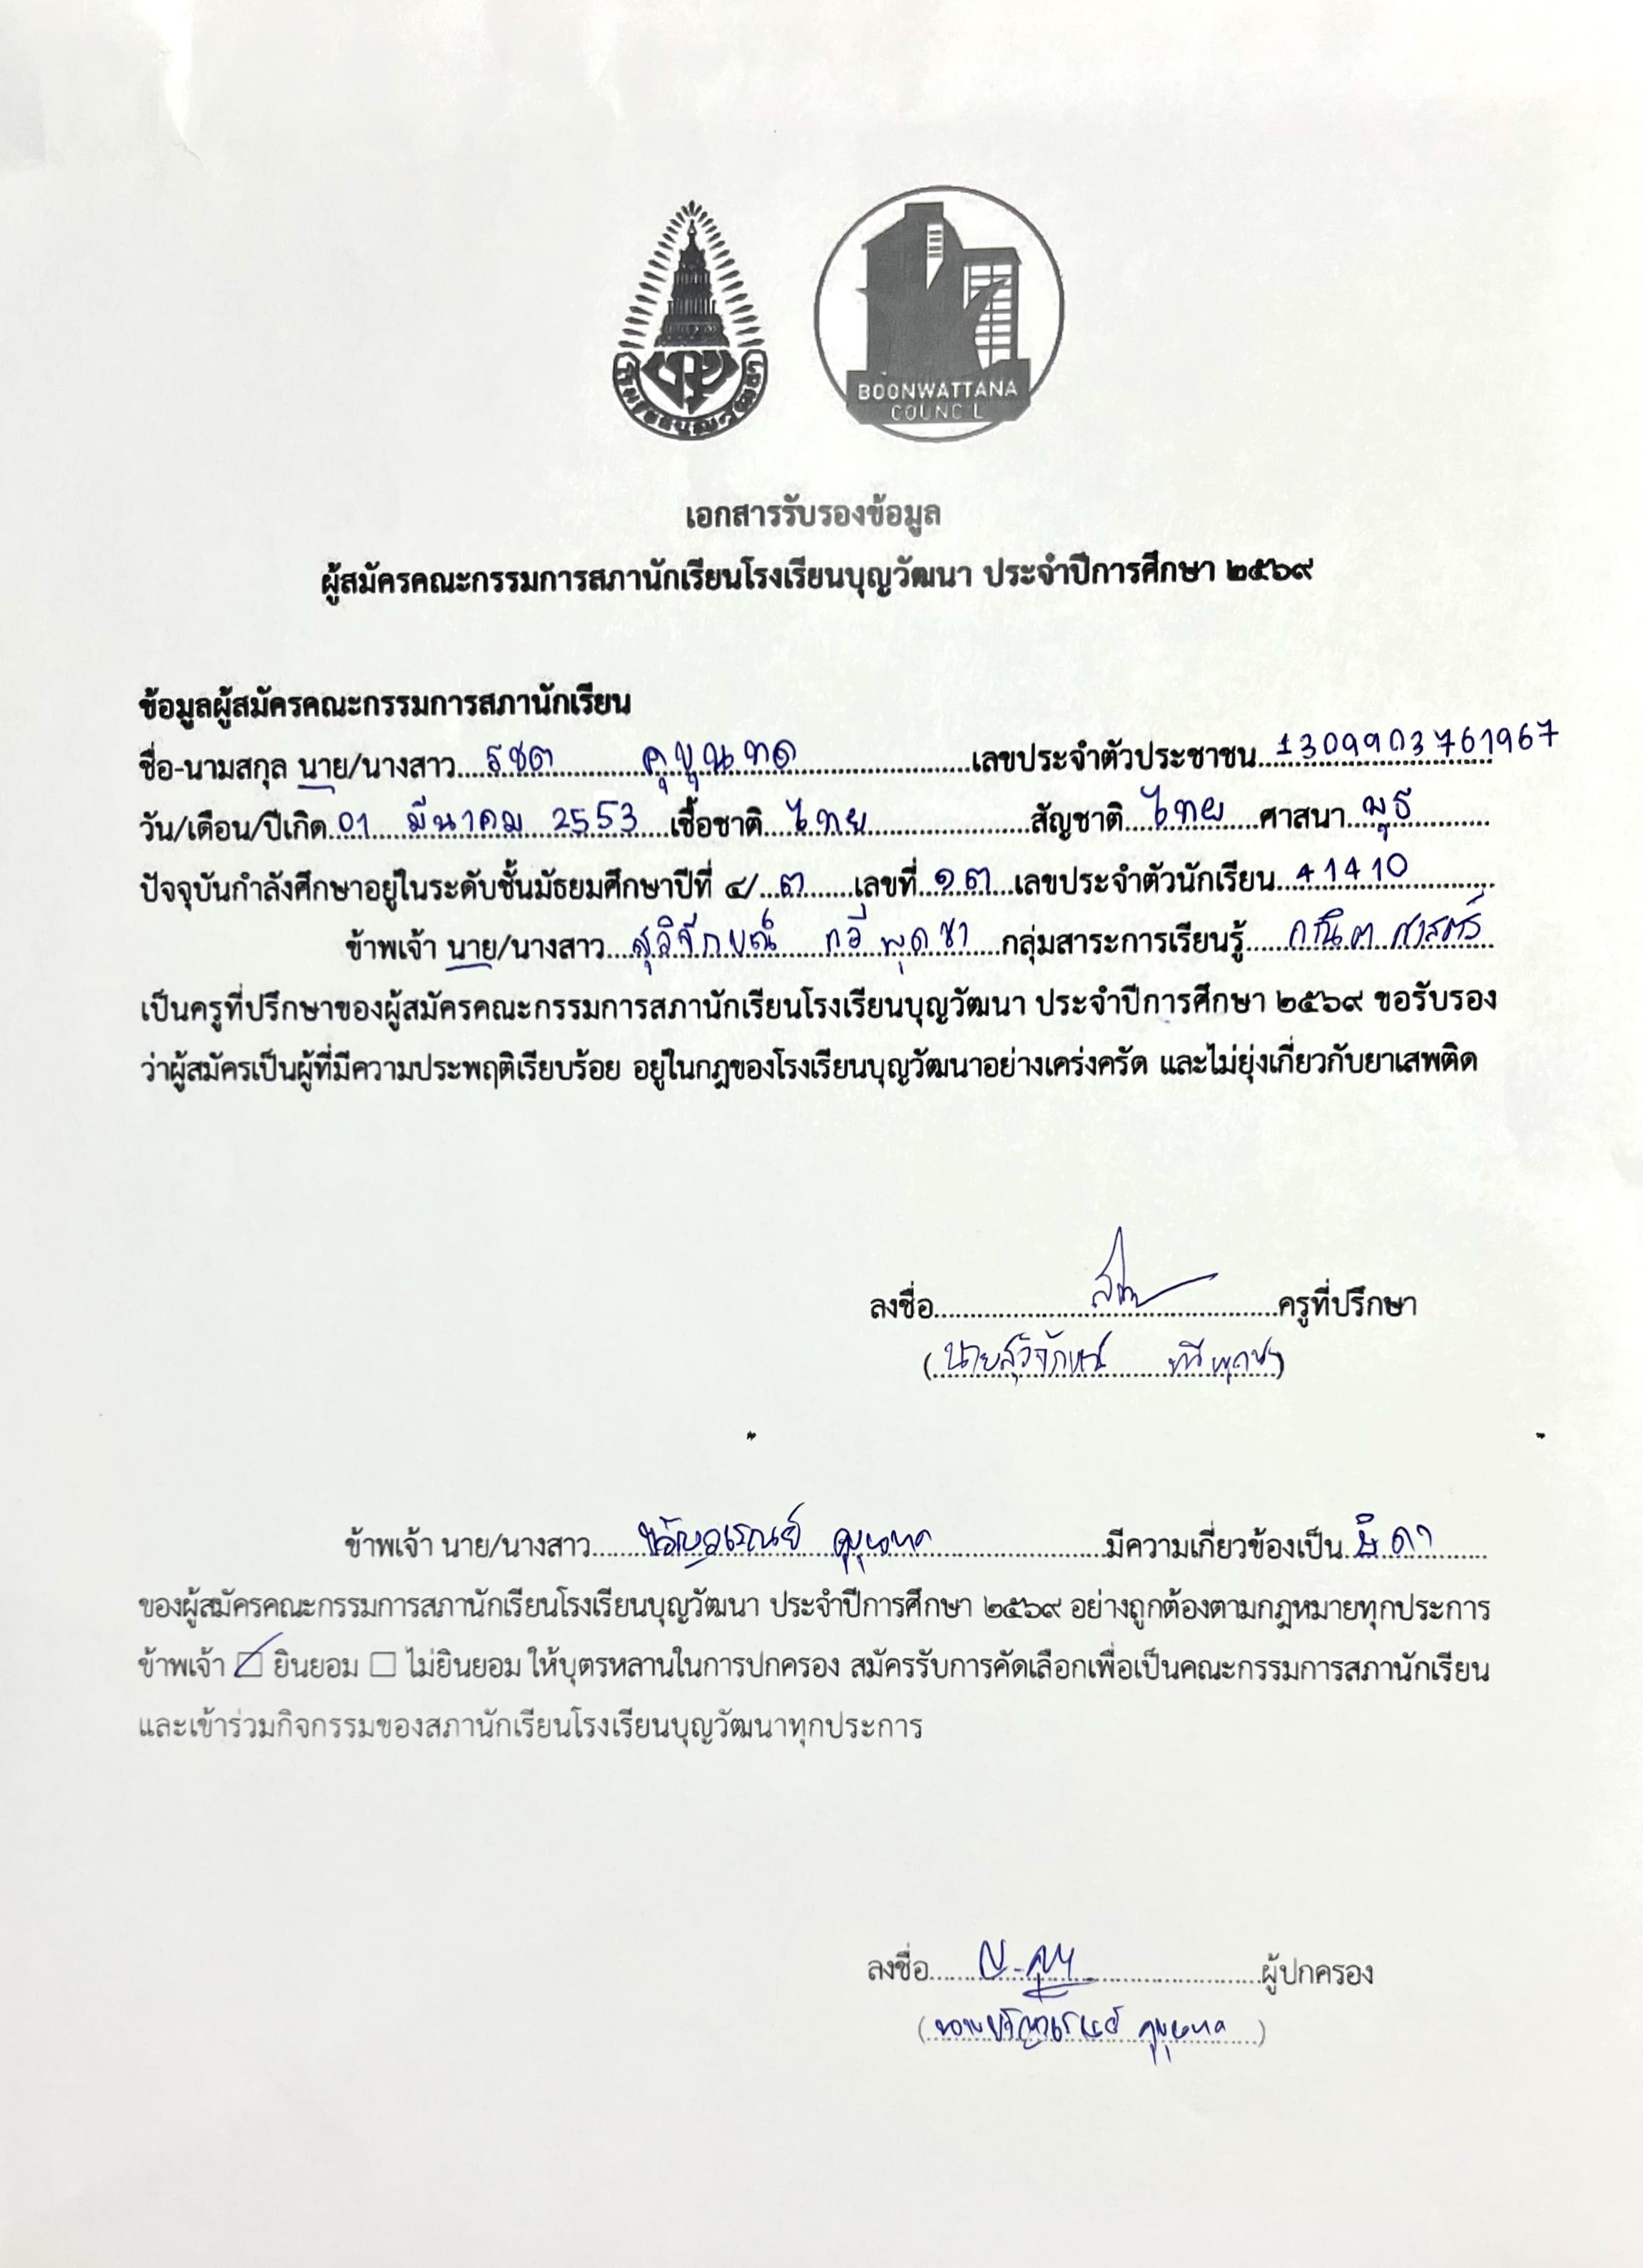 โรงเรียนบุญวัฒนา
BOONWATTANA
COUNCIL
เอกสารรับรองข้อมูล
ผู้สมัครคณะกรรมการสภานักเรียนโรงเรียนบุญวัฒนา ประจำปีการศึกษา ๒๕๖๙
ข้อมูลผู้สมัครคณะกรรมการสภานักเรียน
ชื่อ-นามสกุล นาย/นางสาว รชต คุขุนทด เลขประจำตัวประชาชน 1309903761967
วัน/เดือน/ปีเกิด 01 มีนาคม 2553 เชื้อชาติ ไทย สัญชาติ ไทย ศาสนา พุธ
ปัจจุบันกำลังศึกษาอยู่ในระดับชั้นมัธยมศึกษาปีที่ ๔/ ๓ เลขที่ ๑๓ เลขประจำตัวนักเรียน 41410
ข้าพเจ้า นาย/นางสาว สุวิจักขณ์ ทวีพุดซา กลุ่มสาระการเรียนรู้ คณิตศาสตร์
เป็นครูที่ปรึกษาของผู้สมัครคณะกรรมการสภานักเรียนโรงเรียนบุญวัฒนา ประจำปีการศึกษา ๒๕๖๙ ขอรับรอง
ว่าผู้สมัครเป็นผู้ที่มีความประพฤติเรียบร้อย อยู่ในกฎของโรงเรียนบุญวัฒนาอย่างเคร่งครัด และไม่ยุ่งเกี่ยวกับยาเสพติด
ลงชื่อ ครูที่ปรึกษา
(นายสุวิจักขณ์ ทวีพุดซา)
ข้าพเจ้า นาย/นางสาว คุขุนทด มีความเกี่ยวข้องเป็น บิดา
ของผู้สมัครคณะกรรมการสภานักเรียนโรงเรียนบุญวัฒนา ประจำปีการศึกษา ๒๕๖๙ อย่างถูกต้องตามกฎหมายทุกประการ
ข้าพเจ้า ☑ ยินยอม ☐ ไม่ยินยอม ให้บุตรหลานในการปกครอง สมัครรับการคัดเลือกเพื่อเป็นคณะกรรมการสภานักเรียน
และเข้าร่วมกิจกรรมของสภานักเรียนโรงเรียนบุญวัฒนาทุกประการ
ลงชื่อ ผู้ปกครอง
( คุขุนทด )